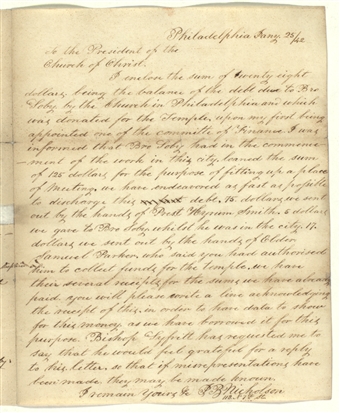 Philadelphia Jany 25/42
To the President of the
Church of Christ.
I inclose the sum of twenty eight
dollars being the balance of the debt due to Bro
Toby by the Church in Philadelphia and which
was donated for the Temple, upon my first being
appointed one of the committe of Finance I was
informed that Bro Toby had in the commence-
ment of the work in this city loaned the sum
of 125 dollars for the purpose of fitting up a place
of Meeting we have endeavored as fast as possible
to discharge this debt, 75 dollars we sent
out by the hands of Prest Hyrum Smith. 5 dollars
we gave to Bro Toby whilst he was in the city, 17
dollars we sent out by the hands of Elder
Samuel Parker who said you had authorised
him to collect funds for the temple, we have
their several receipts for the sums we have already
paid you will please write a line acknowledging
the receipt of this, in order to have data to show
for this money as we have borrowed it for this
purpose. Bishop Syfritt has requested me to
say that he would feel grateful for a reply
to this letter. so that if misrepresentations have
been made, they may be made known.
I remain Yours &c J B Nicholson